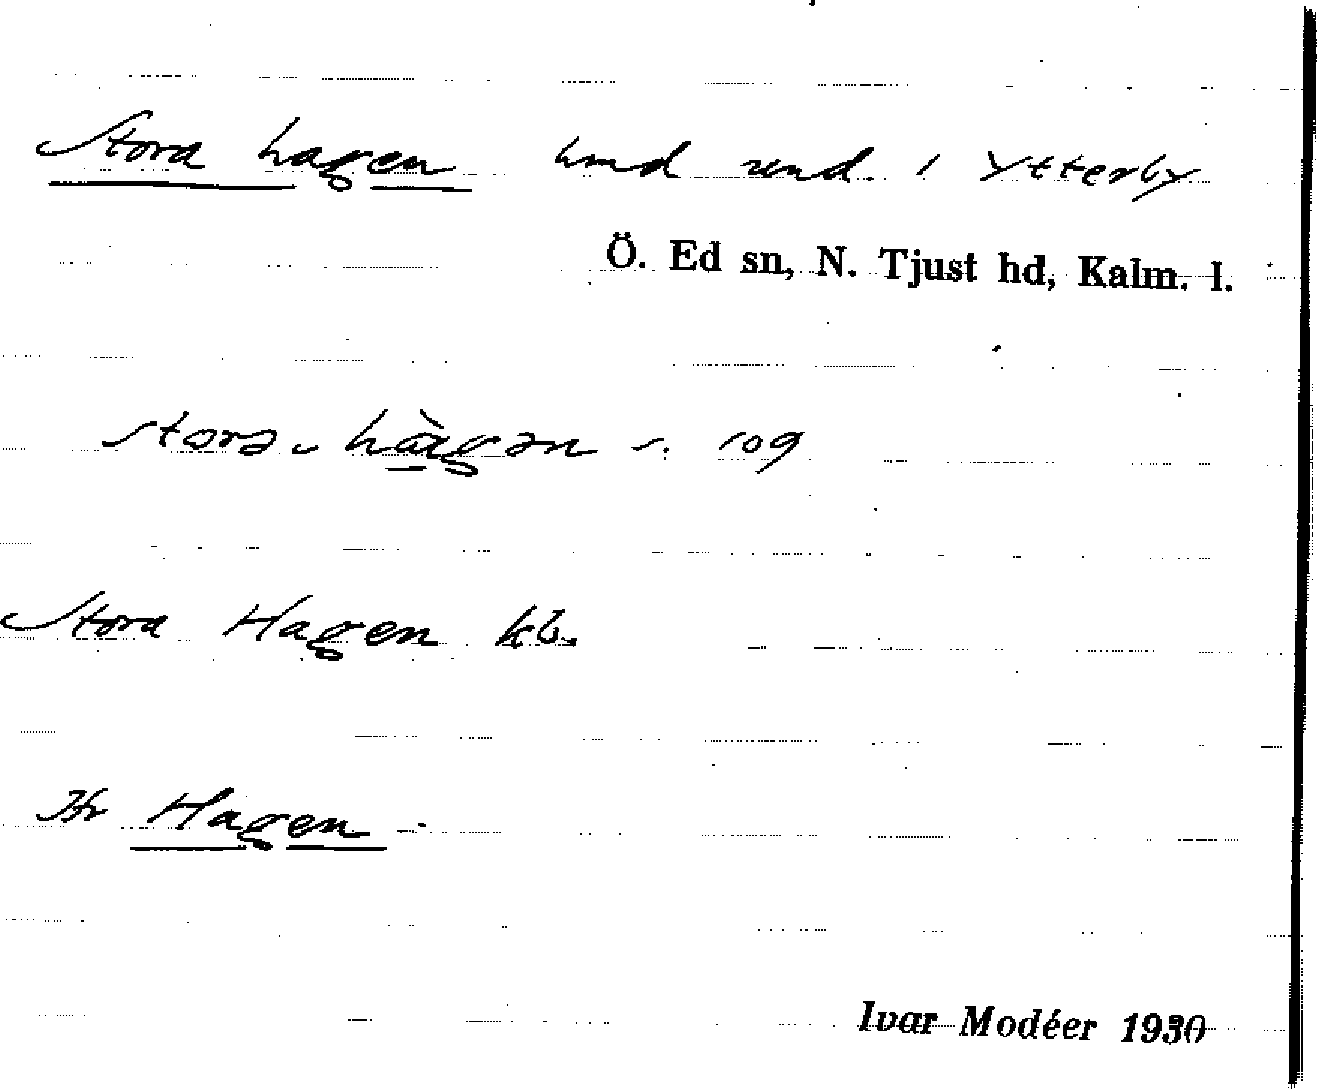 Stora hagen und. i Ytterby
Ö. Ed sn, N. Tjust hd, Kalm. l.
s. 109
Stora Hagen kb.
Jfr Hagen
Ivar Modéer 1930